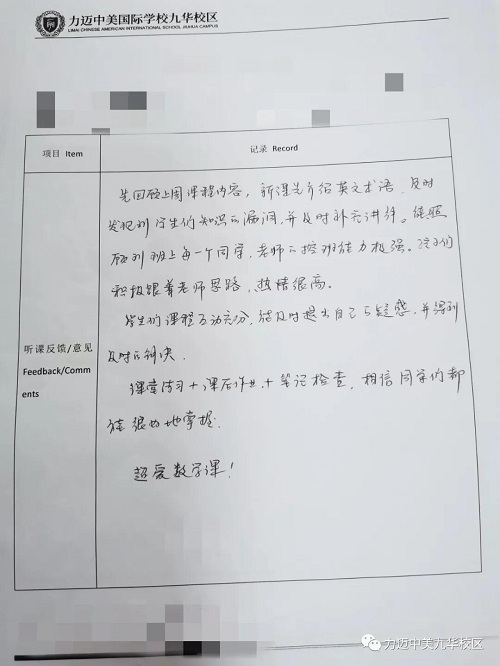 力迈中美国际学校九华校区
LIMAI CHINESE AMERICAN INTERNATIONAL SCHOOL JIUHUA CAMPUS
项目 Item
记录 Record
先回顾上周课程内容，新课先介绍英文术语，及时
发现到学生们知识的漏洞，并及时补充讲解。能照
顾到班上每一个同学，老师的控班能力极强。孩子们
积极跟着老师思路，热情很高。
学生们课程互动充分，能及时提出自己的疑惑，并得到
及时的解决.
课堂练习+课后作业+笔记检查，相信同学们都
能很好地掌握.
超爱数学课！
听课反馈/意见
Feedback/Comm
ents
力迈中美九华校区